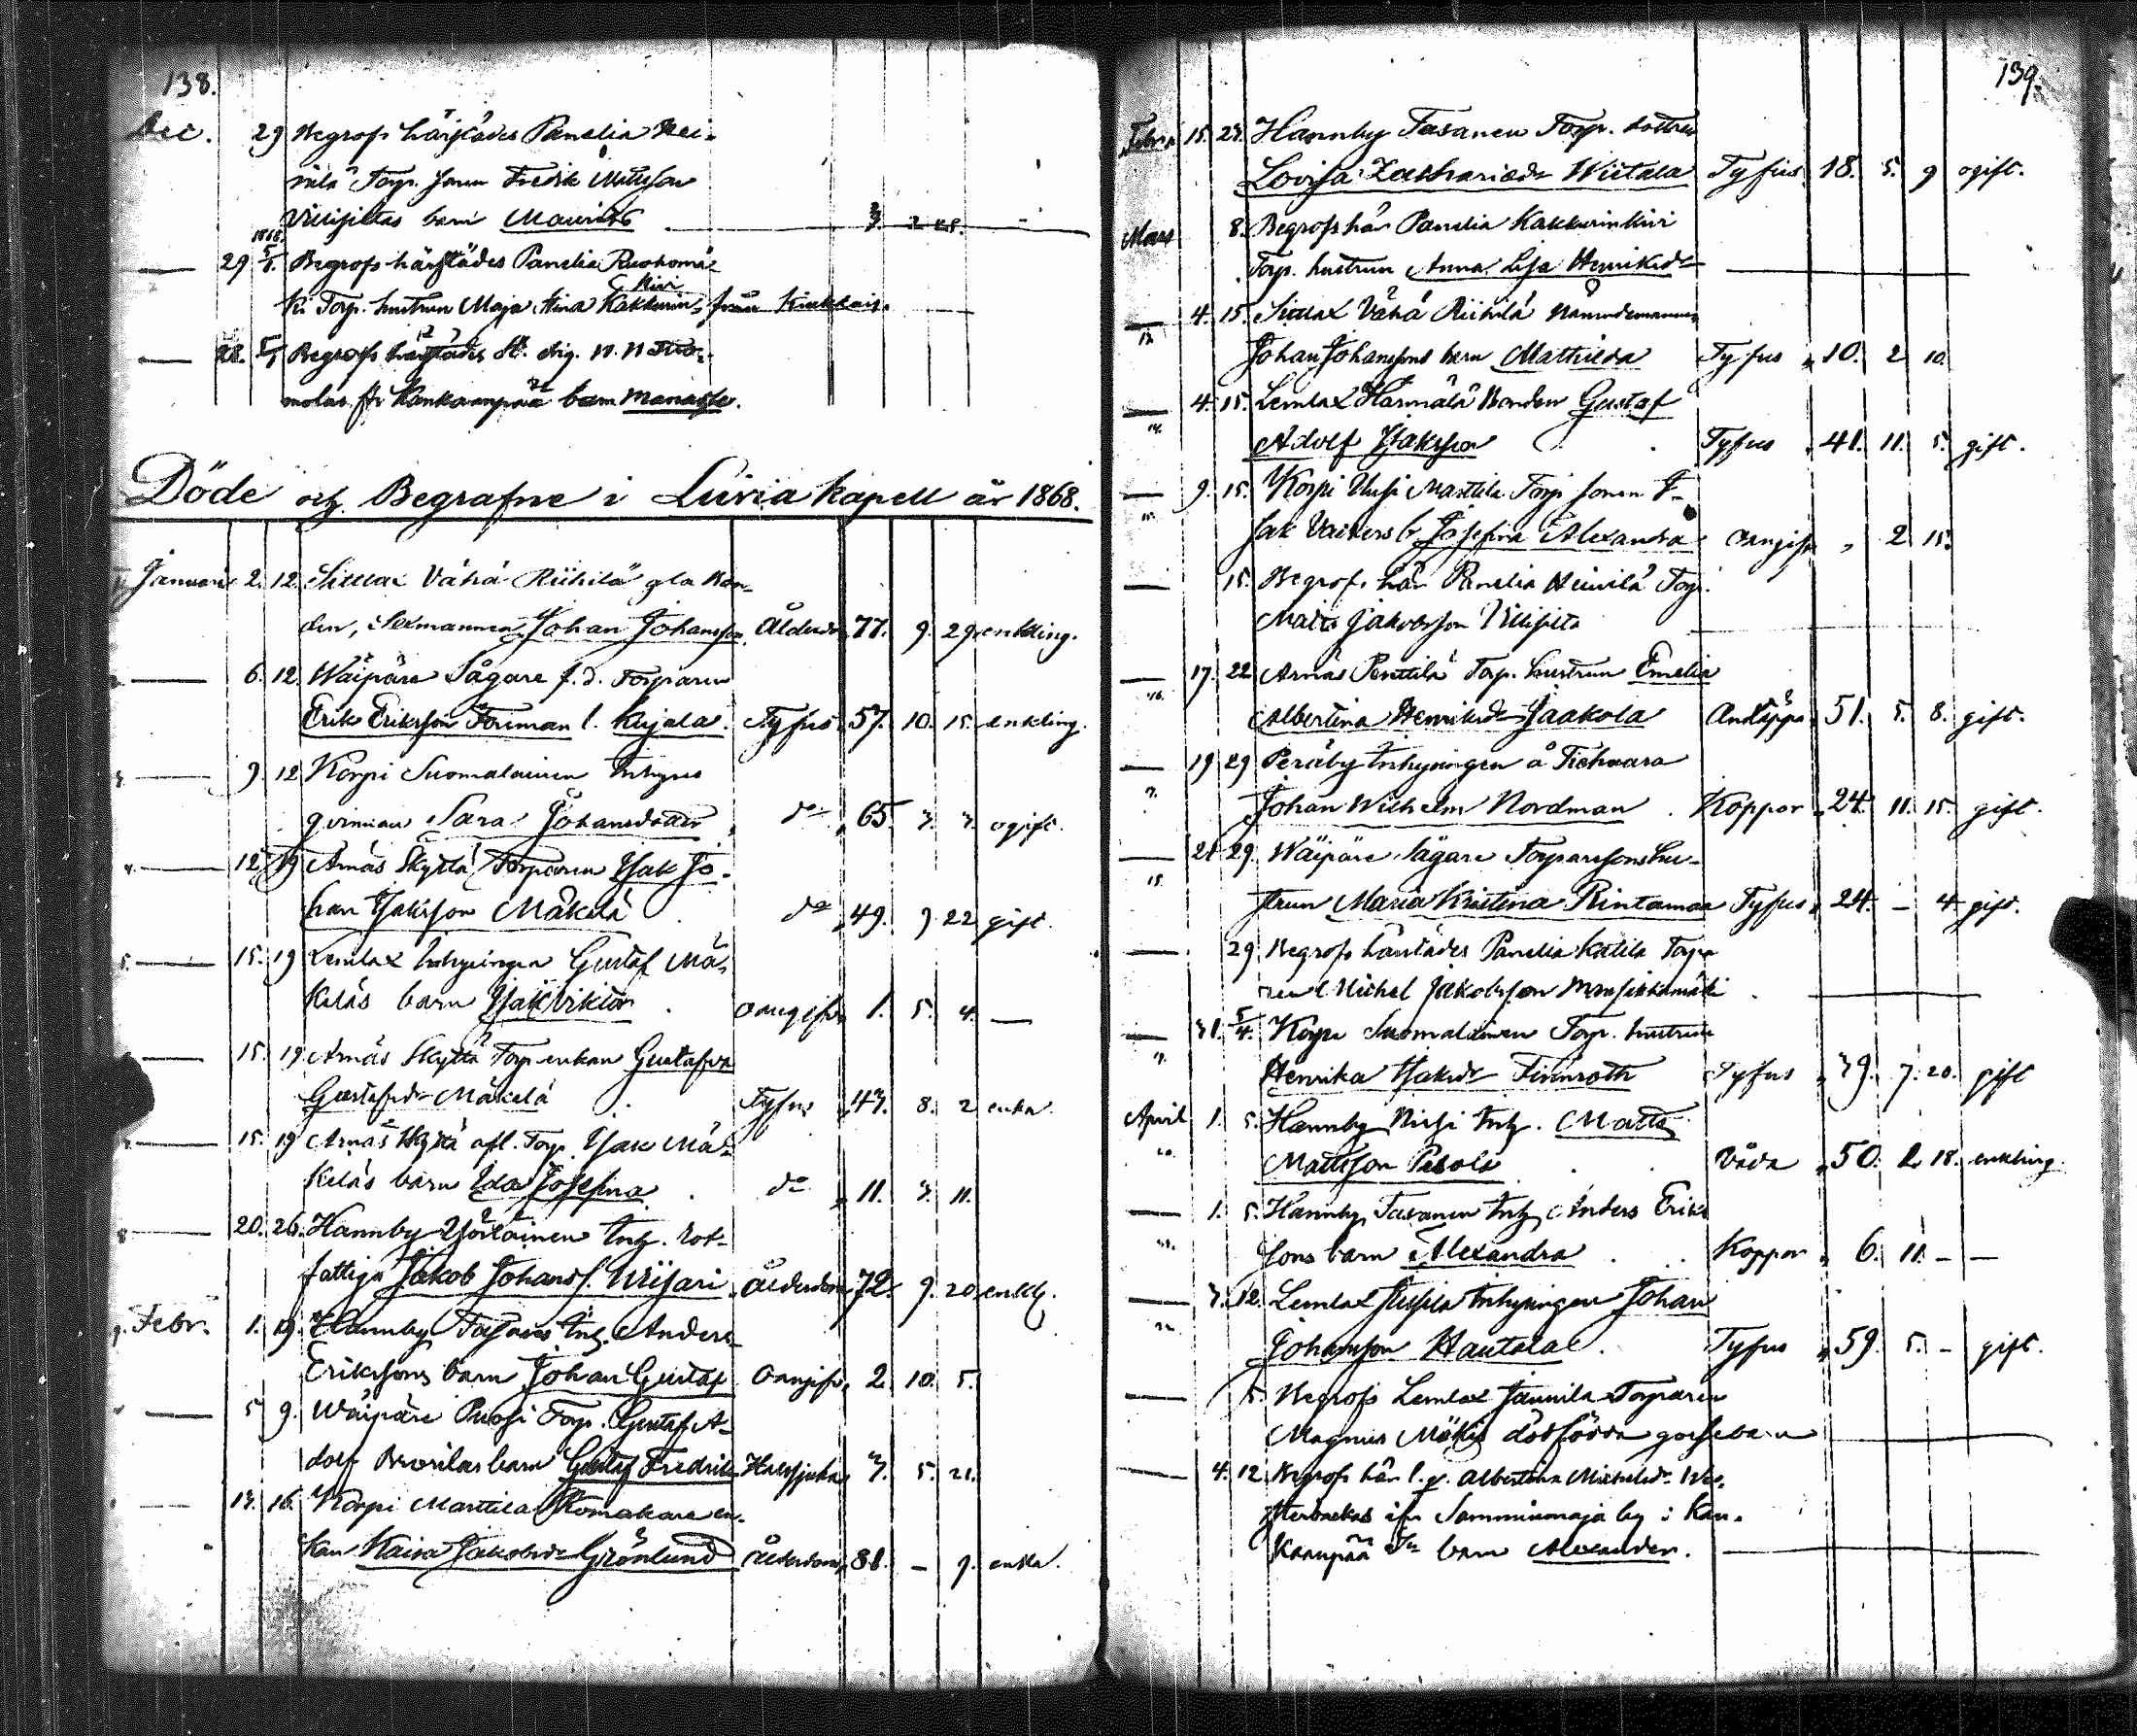 138.
Dec. 29 Begrofs härstädes Panelia Hei-
nilä Torp. sonen Fredik Mattsson
Vilisittas barn Maurits 3. 2 28. -
1868.
29 5/1. Begrofs härstädes Panelia Ruohomä-
kiri
ki Torp. hustrun Maja Stina Kakkurin- från Kiukkais.
28. 5/1 Begrofs härstädes
molas fr Kankaanpää barn Manasse.
Döde och Begrafne i Luvia Kapell år 1868.
Januari 2. 12. Sittlax Vähä Riihilä gla Bon-
den, Sexmannen Johan Johansson Ålderdom 77. 9. 29. enkling.
6. 12. Wäipäre Sågare f. d. Torparen
Erik Eriksson Foriman l. Kujala. Tyfus 57. 10. 15. enkling.
9. 12 Korpi Suomalainen Inhyses
qvinnan Sara Johansdotter do 65. 3. 3. ogift.
12. 19 Arnäs Skyttä Torparen Isak Jo-
han Isaksson Mäkelä do 49. 9. 22 gift.
5. 15. 19 Lemlax Inhysingen Gustaf Mä-
keläs barn Isak Viktor oangifv. 1. 5. 4. —
15. 19 Arnäs Skyttä Torp. enkan Gustafva
Gustafsdr Mäkelä Tyfus 43. 8. 2 enka.
15. 19 Arnäs Skyttä afl. Torp. Isak Mä-
keläs barn Ida Josefina do 11. 3. 11.
20. 26. Hannby Yörläinen Inh. rot-
fattiga Jakob Johanss. Uusari Ålderdom 72. 9. 20. enklg.
9. Febr. 1. 19. Hannby Tasanen Inh. Anders
Erikssons barn Johan Gustaf Oangifv. 2. 10. 5.
5 9. Wäipäre Puosi Torp. Gustaf A-
dolf barn Gustaf Fredrik Halssjuka 3. 5. 21.
13. 16. Korpi Marttila Råmakare en-
kan Kaisa Jakobsdr Grönlund Ålderdom 81. - 9. enka.
139.
Febr. 15. 23. Hannby Tasanen Torp. dottren
Lovisa Zachariædr Wiitala Tyfus. 18. 5. 9 ogift.
Mars 8. Begrofs här Panelia Kakkurinkiri
Torp. hustrun Anna Lisa Henriksdr
4. 15. Sittlax Vähä Riihilä Nämndemannen
13.
Johan Johanssons barn Mathilda Tyfus 10. 2 10.
4. 15. Lemlax Härmälä Bonden Gustaf
14.
Adolf Isaksson Tyfus 41. 11. 5. gift.
9. 15. Korpi Uusi Marttila Torp. sonen F-
15.
Isak b. Josefina Alexandra Oangifv. 2 15.
15. Begrofs här Panelia Heinilä Torp.
Matts Jakobsson Vilisitta
17. 22 Arnäs Penttilä Torp. hustrun Emelia
16.
Albertina Henriksdr Jaakola Andtäppa 51. 5. 8. gift.
19 29 Peräby Inhysingen å Tiehvara
7.
Johan Wilhelm Nordman Koppor 24. 11. 15. gift.
21 29. Wäipäre Sågare Torparesons hu-
18.
strun Maria Kristina Rintamaa Tyfus 24. - 4 gift.
29 Begrofs härstädes Panelia Katila Torpa
ren Michel Jakobsson Mansikkamäki
31. 5/4. Korpi Suomalainen Torp. hustrun
9.
Henrika Isaksdr Finnroth Tyfus 39. 7. 20. gift
April 1. 5. Hannby Nissi Inh. Matts
20.
Mattsson Pelola Våda 50. 2. 18. enkling.
1. 5. Hannby Tasanen Inh. Anders Eriks
21.
sons barn Alexandra Koppor 6. 11. - -
3. 12. Lemlax Jussila Inhysingen Johan
22.
Johansson Hautala Tyfus 59. 5. - gift.
5. Begrofs Lemlax Jaunila Torparen
Magnus Mäkis dödfödda gossebarn
4. 12. Begrofs här l. q. Albertina Michelsdr Wes-
terbackas ifr Samminmaja by i Kan-
kaanpää Sn barn Alexander.